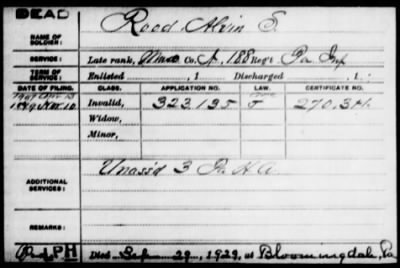 DEAD
NAME OF SOLDIER: Rood Alvin S.
SERVICE: Late rank, Co. A, 188 Reg't Pa Inf
TERM OF SERVICE: Enlisted , 1 Discharged , 1
DATE OF FILING. CLASS. APPLICATION NO. LAW. CERTIFICATE NO.
Invalid, 323,135 270,311
Widow,
Minor,
ADDITIONAL SERVICES: Unas'd 3 Pa H A
REMARKS:
PH Died Sep 29, 1929, at Bloomingdale, Pa